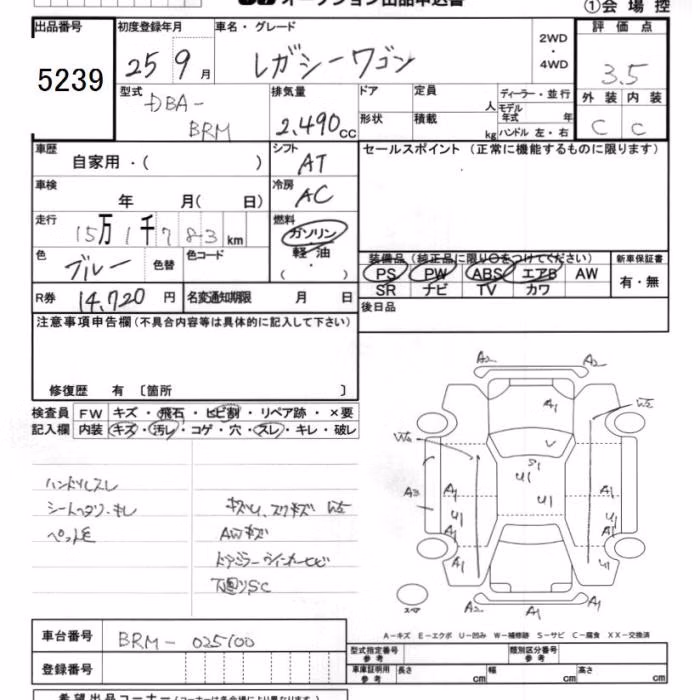 オークション出品申込書
①会場控
出品番号 5239
初度登録年月 25 9月
車名・グレード レガシーワゴン
2WD・4WD
評価点 3.5
型式 DBA-BRM
排気量 2,490cc
ドア 定員 人
ディーラー・並行
モデル年式 年
形状 積載 kg
ハンドル 左・右
外装 内装
C C
車歴 自家用・( )
シフト AT
セールスポイント(正常に機能するものに限ります)
車検 年 月( 日)
冷房 AC
走行 15万1千783km
燃料 ガソリン 軽油 ・( )
色 ブルー 色替 色コード
装備品(純正品に限り○をつけてください)
新車保証書
PS PW ABS エアB AW
有・無
SR ナビ TV カワ
R券 14,720円
名変通知期限 月 日
後日品
注意事項申告欄(不具合内容等は具体的に記入して下さい)
修復歴 有 〔箇所 〕
検査員記入欄
FW キズ・飛石・ヒビ割・リペア跡・×要
内装 キズ・汚レ・コゲ・穴・スレ・キレ・破レ
ハンドルスレ
シートヘタリ・キレ
ペット毛
AWキズ
ドアミラーウインカーヒビ
下廻りSC
A2 A2
A1
W2
W2
V
S1
U1
U1
A3
A1 A1
U1 U1
A1 A1
U1 U1
スペア
A2 A1 A1
A-キズ E-エクボ U-凹み W-補修跡 S-サビ C-腐食 XX-交換済
車台番号 BRM-025100
登録番号
型式指定番号 参考
類別区分番号 参考
車庫証明用 参考
長さ cm 幅 cm 高さ cm
希望出品コーナー(コーナーは各会場により異なります)